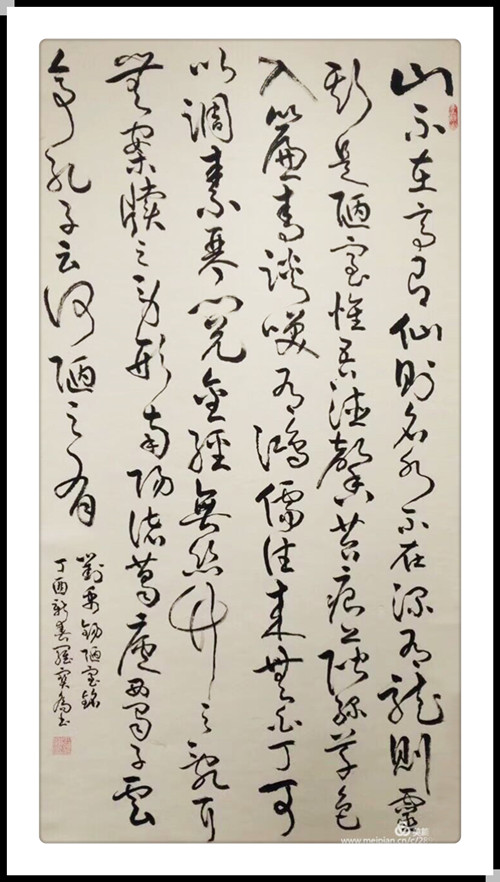 山不在高有仙則名水不在深有龍則靈
斯是陋室惟吾德馨苔痕上階綠草色
入簾青談笑有鴻儒往來無白丁可
以調素琴閱金經無絲竹之亂耳
無案牘之勞形南陽諸葛廬西蜀子雲
亭孔子云何陋之有
劉禹錫陋室銘
丁酉新春羅寶書
美篇
www.meipian.cn/c/2